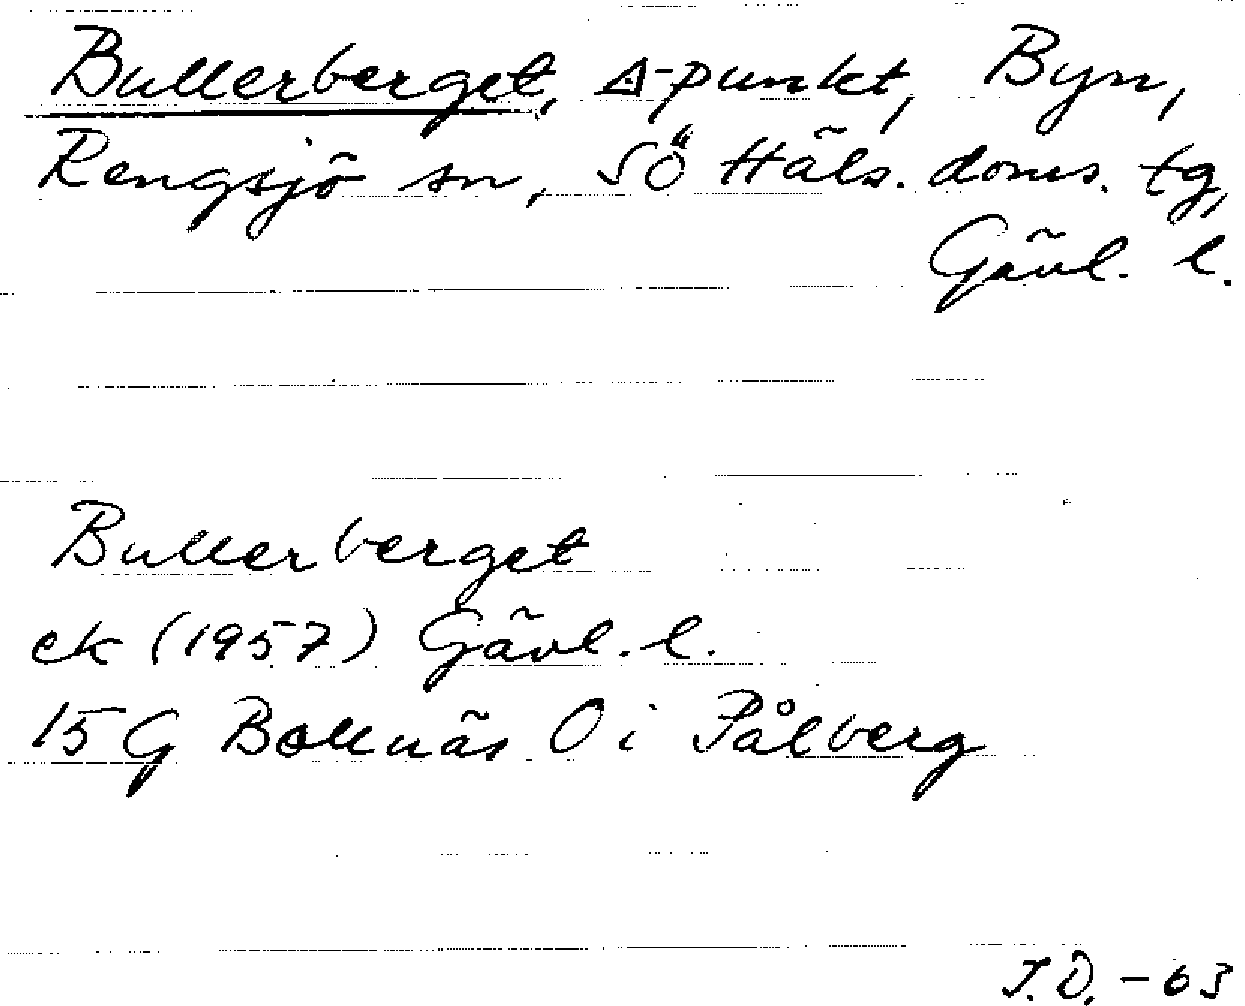 Bullerberget, △-punkt, Byn,
Rengsjö sn, SÖ Häls. doms. tg,
Gävl. l.
Bullerberget
ek (1957) Gävl. l.
15 G Bollnäs O i Pålberg
J.D. -63